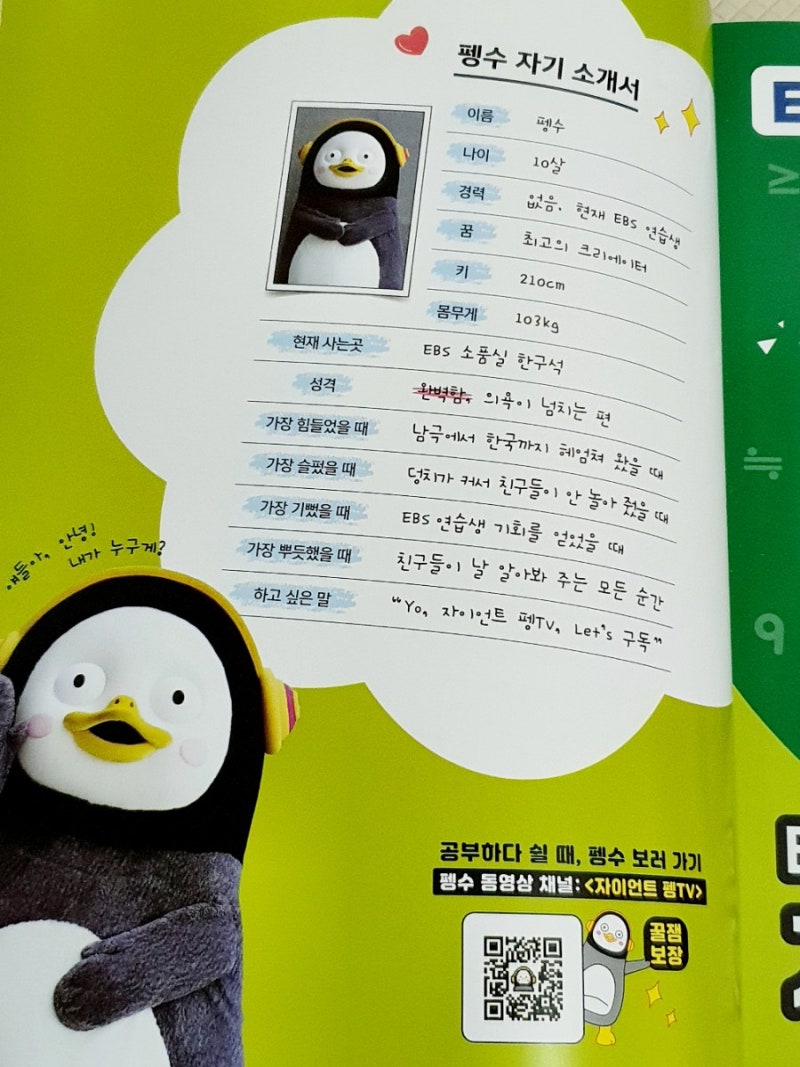 펭수 자기 소개서
이름 펭수
나이 10살
경력 없음. 현재 EBS 연습생
꿈 최고의 크리에이터
키 210cm
몸무게 103kg
현재 사는곳 EBS 소품실 한구석
성격 완벽함, 의욕이 넘치는 편
가장 힘들었을 때 남극에서 한국까지 헤엄쳐 왔을 때
가장 슬펐을 때 덩치가 커서 친구들이 안 놀아 줬을 때
가장 기뻤을 때 EBS 연습생 기회를 얻었을 때
가장 뿌듯했을 때 친구들이 날 알아봐 주는 모든 순간
하고 싶은 말 "Yo, 자이언트 펭TV, Let's 구독"
얘들아, 안녕!
내가 누구게?
공부하다 쉴 때, 펭수 보러 가기
펭수 동영상 채널: <자이언트 펭TV>
꿀잼
보장
≥
≒
9